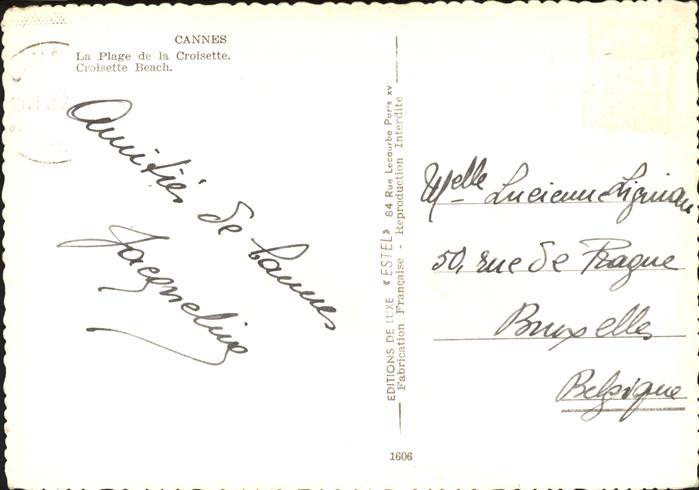 CANNES
La Plage de la Croisette.
Croisette Beach.
Amitiés de Cannes
Jacqueline
EDITIONS DE LUXE « ESTEL » 84 Rue Lecourbe Paris XV
Fabrication Française - Reproduction Interdite
Melle Lucienne
50, rue de Prague
Bruxelles
Belgique
1606